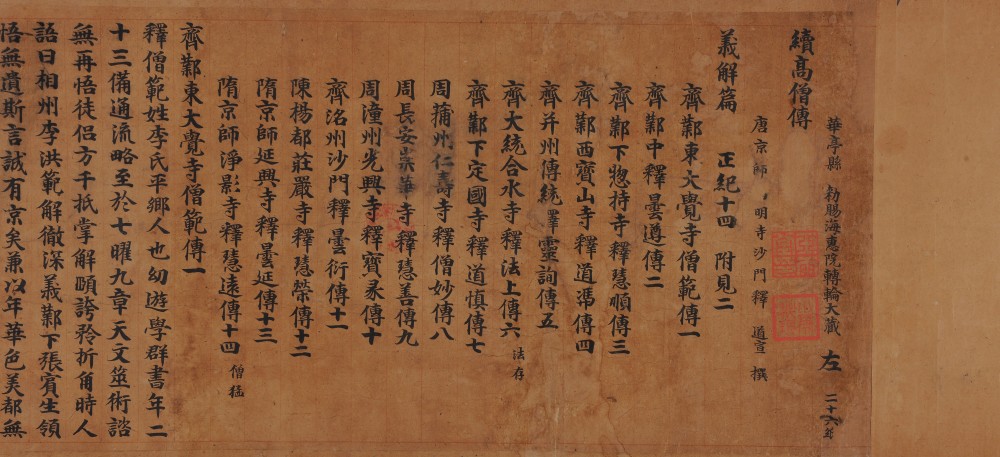 華亭縣 勑賜海惠院轉輪大藏 左 二十六紙
續高僧傳
唐京師 明寺沙門釋 道宣 撰
義解篇 正紀十四 附見二
齊鄴東大覺寺僧範傳一
齊鄴中釋曇遵傳二
齊鄴下惣持寺釋慧順傳三
齊鄴西寶山寺釋道憑傳四
齊并州傳統釋靈詢傳五
齊大統合水寺釋法上傳六 法存
齊鄴下定國寺釋道慎傳七
周蒲州仁壽寺釋僧妙傳八
周長安崇華寺釋慧善傳九
周潼州光興寺釋寶彖傳十
齊洺州沙門釋曇衍傳十一
陳楊都莊嚴寺釋慧榮傳十二
隋京師延興寺釋曇延傳十三
隋京師淨影寺釋慧遠傳十四 僧猛
齊鄴東大覺寺僧範傳一
釋僧範姓李氏平鄉人也幼遊學群書年二
十三備通流略至於七曜九章天文筮術諮
無再悟徒侶方千抵掌解頤誇矜折角時人
語曰相州李洪範解徹深義鄴下張賓生領
悟無遺斯言誠有京矣兼以年華色美都無